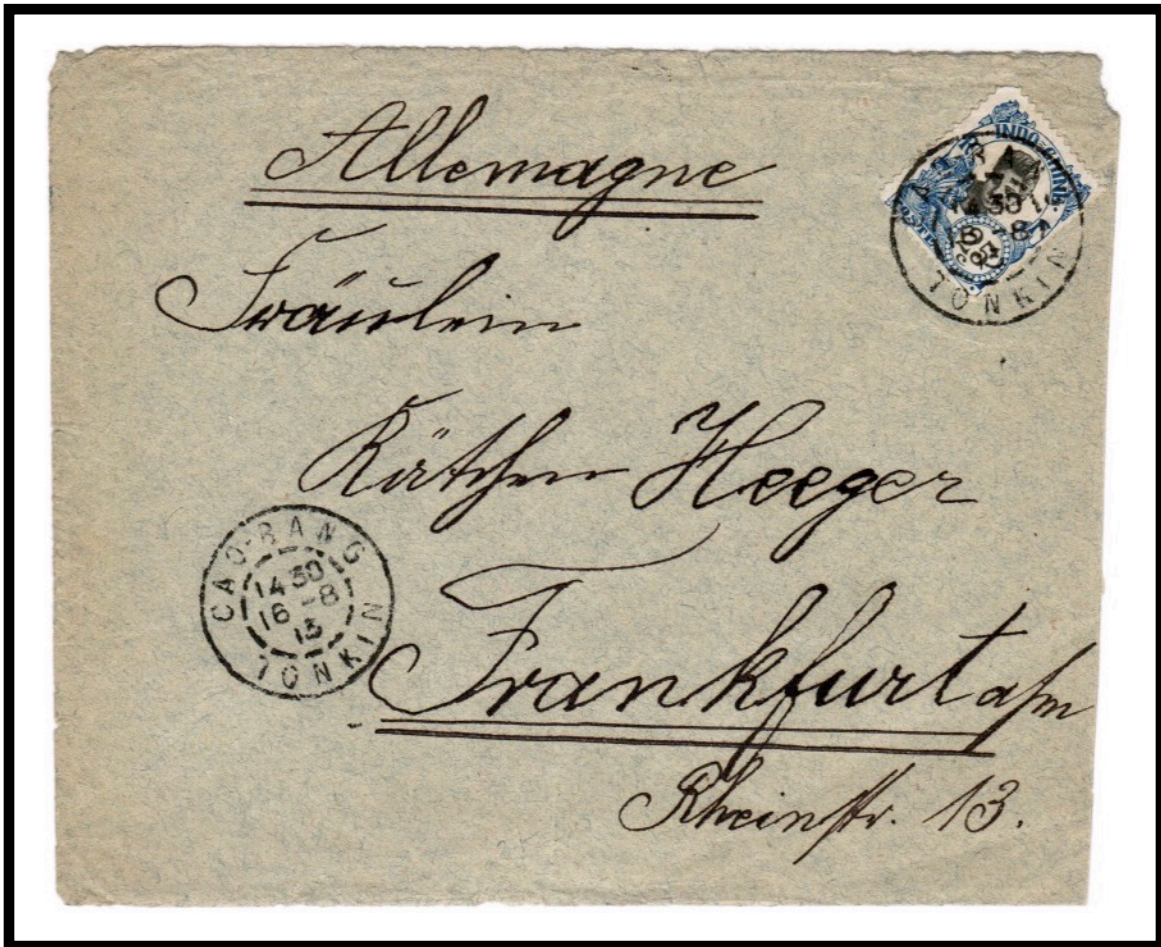 Allemagne
INDO-CHINE
TONKIN
Fräulein
Käthchen Heeger
CAO-BANG
14 30
16 -8
13
TONKIN
Frankfurt a/m
Rheinstr. 13.